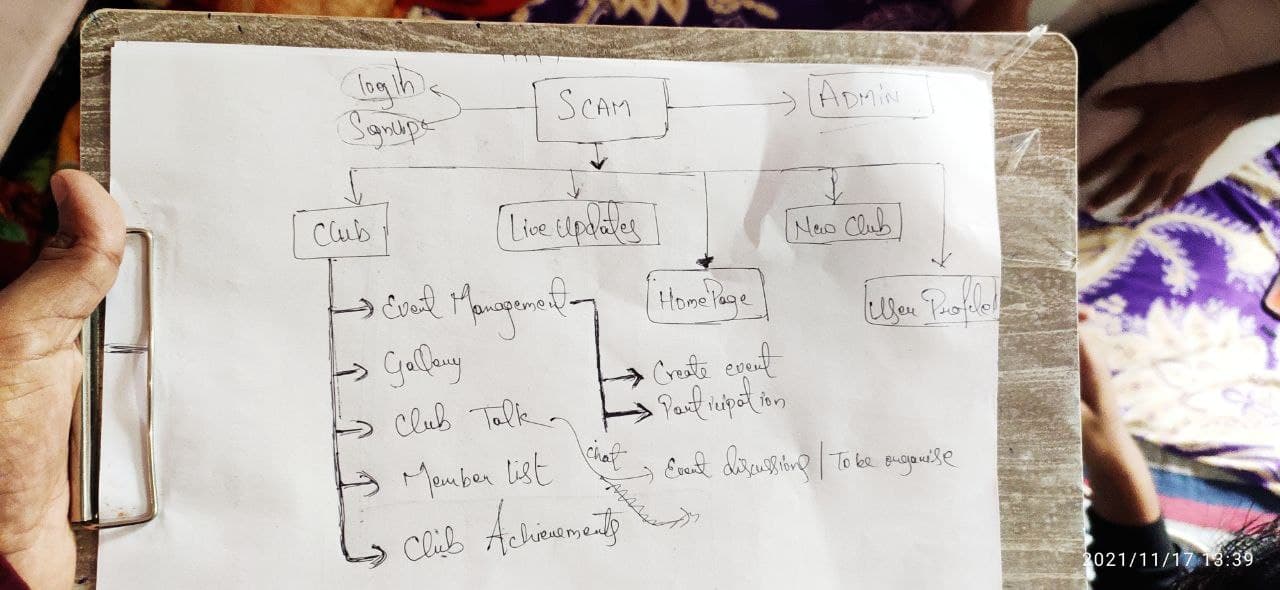 login
SCAM
ADMIN
Signup
Club
Live Updates
New Club
Home Page
User Profile
Event Management
Gallery
Create event
Participation
Club Talk
chat
Event discussions / To be organise
Member list
Club Achievements
2021/11/17 13:39